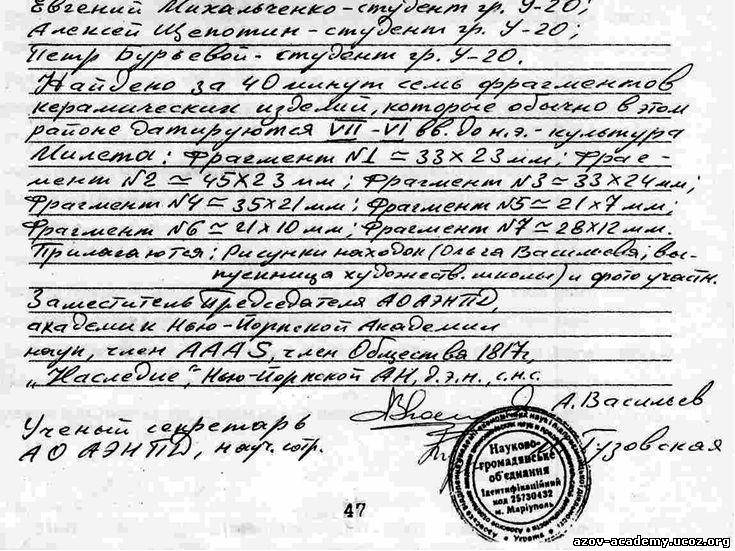 Евгений Михальченко-студент гр. У-20;
Алексей Щепотин-студент гр. У-20;
Петр Бурьевой-студент гр. У-20.
Найдено за 40 минут семь фрагментов
керамических изделий, которые обычно в этом
районе датируются VII-VI вв. до н.э.-культура
Милета: Фрагмент №1 ≃ 33×23 мм; Фраг-
мент №2 ≃ 45×23 мм; Фрагмент №3 ≃ 33×24 мм;
Фрагмент №4 ≃ 35×21 мм; Фрагмент №5 ≃ 21×7 мм;
Фрагмент №6 ≃ 21×10 мм; Фрагмент №7 ≃ 28×12 мм.
Прилагаются: Рисунки находок (Ольга Васильева, вы-
пускница художеств. школы) и фото участн.
Заместитель Председателя АОАЭНПД,
академик Нью-Йоркской Академии
наук, член AAAS, член Общества 1817г,
„Наследие", Нью-Йоркской АН, д.э.н., с.н.с.
А. Васильев
Ученый секретарь
АО АЭНПД, науч. сотр.
Гузовская
Науково-
громадянське
об'єднання
Ідентифікаційний
код 25730432
м. Маріуполь
47
azov-academy.ucoz.org